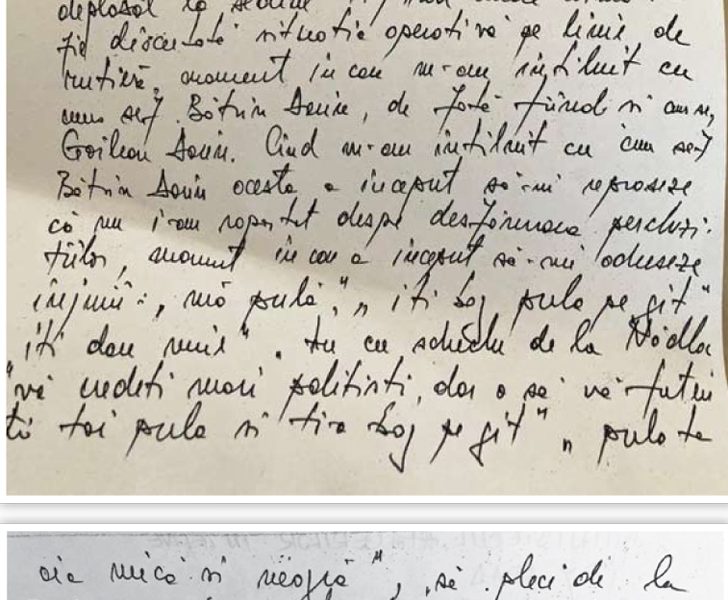 deplasat la sediul
fie discutată situatia operativă pe linie de
rutieră, moment in care m-am intilnit cu
cms sef Bătrin Sorin, de fată fiind si cms,
Goilean Sorin. Cind m-am intilnit cu cms sef
Bătrin Sorin acesta a inceput să-mi reproseze
că nu i-am raportat despre desfăsurarea perchizi-
tiilor, moment in care a inceput să-mi adreseze
injurii: "mă pulă", "iti bag pula pe git"
iti dau muie". tu cu schiclu de la Nădlac
"vă credeti mari politisti, dar o să vă futem
ti toi pula si ti-o bag pe git" "pula ta
aia mică si neagră", "să pleci de la